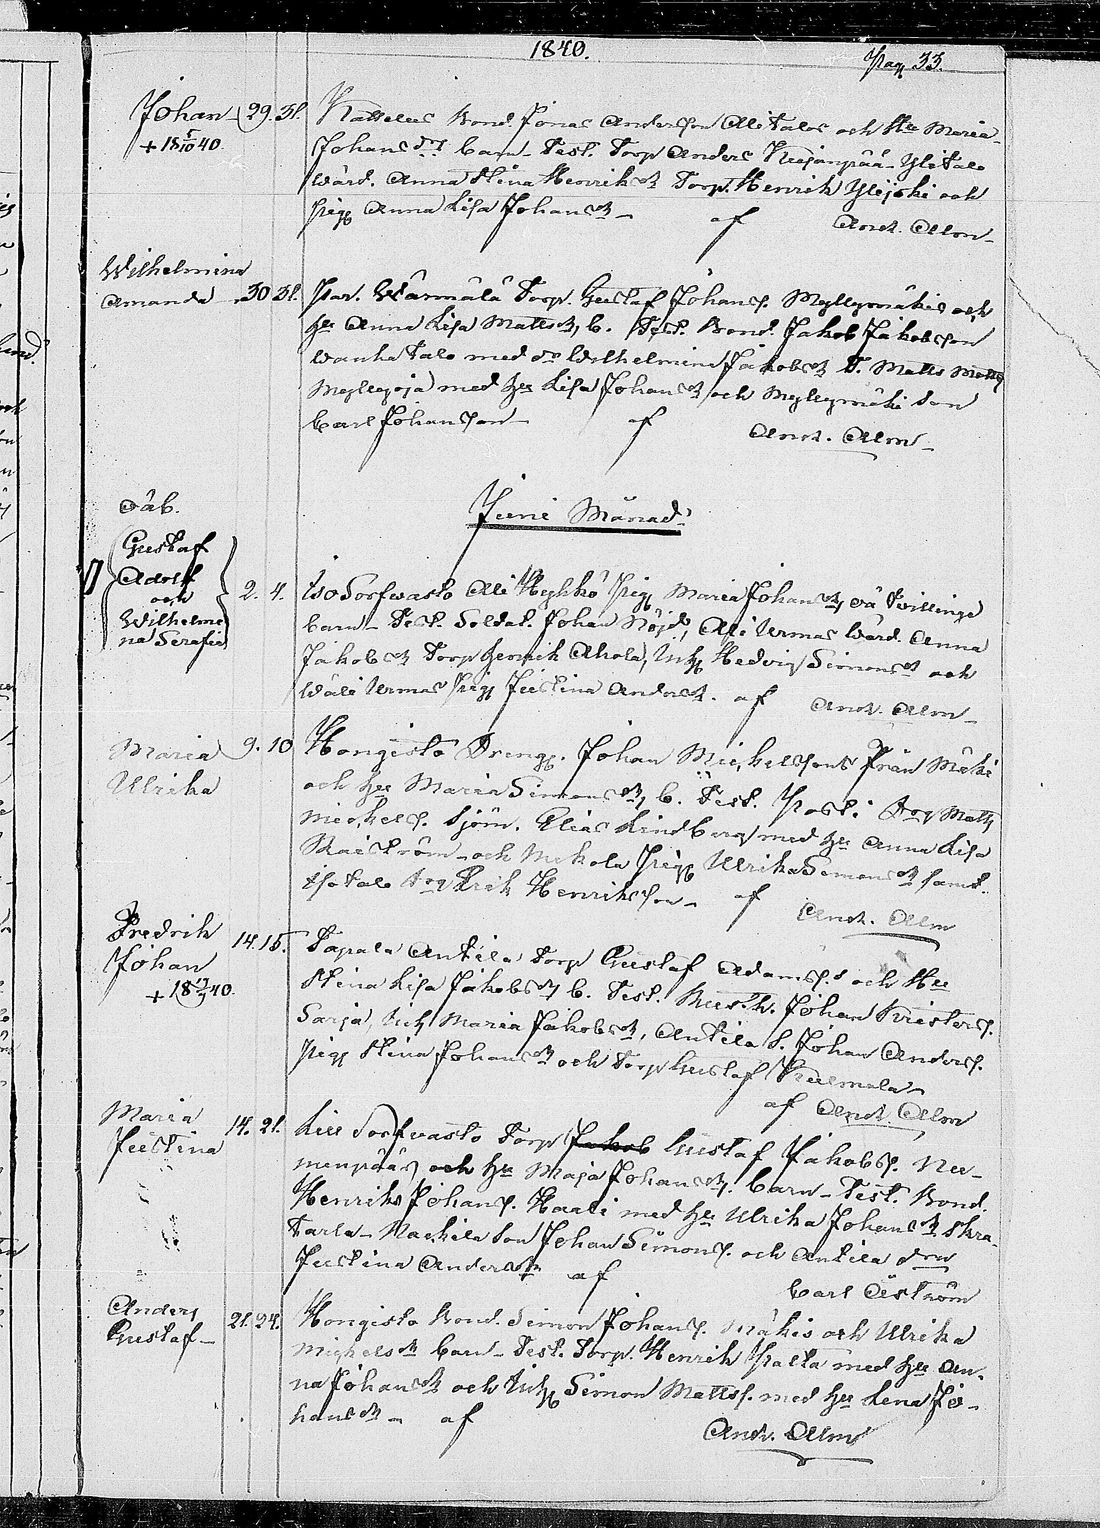 1840.
Pag 33.
Johan 29. 31. Kattelus Bond. Jonas Anderson Alitalos och Hu Maria
+ 18 5/10 40 Johans dr barn Test. Torp Anders Kujanpää Ylitalo
Wärd. Anna Stina Henriks dr Torp. Henrik Ylijoki och
Pig Anna Lisa Johans dr af And. Alm
Wilhelmina
Amanda 30 31. Par. Wärmälä Torp. Gustaf Johans. Myllymäkis och
Hu Anna Lisa Matts dr, b. Test. Bond. Jakob Jakobson
Wanhatalo med do Wilhelmina Jakobs dr S. Matts Matts
Myllyoja med Hu Lisa Johans dr och Myllymäki Son
Carl Johanson af And. Alm
Juni Månad
oäb.
Gustaf
Adolf
och 2. 4. Iso Sorfwasto Ali Hykkö Pig Maria Johans dr, oä twillinge
Wilhelmi barn Test. Soldat. Johan Nöjd, Ali Urmas Wärd. Anna
na Serafia Jakobs dr Torp Henrik Ahola, Hedvig Simons dr och
Wäli Urmas Pig Justina Anders dr. af And. Alm
Maria 9. 10 Hongisto Dreng. Johan Michelsons från Mäki
Ulrika och Hu Maria Simons dr, b. Test. Matts
Michels. Sjöm. Elias Lindberg med Hu Anna Lisa
och Mikola Pig Ulrika Simons dr samt
Isotalo Erik Henrikson af And. Alm
Fredrik 14. 15. Tapala Antila Torp Gustaf Adams. och Hu
Johan Stina Lisa Jakobs dr b. Test. Johan Kristers.
+ 18 17/7 40. Sarja, Maria Jakobs dr, Antila S. Johan Anders.
Pig Stina Johans dr och Torp Gustaf Kulmala
af And. Alm
Maria 14. 21. Lill Sorfwasto Torp Jakob Gustaf Jakobs. Nu-
Justina menpää och Hu Maja Johans dr. barn Test. Bond.
Henriks Johans. Haali med Hu Ulrika Johans dr Skra-
tarla Markila Son Johan Simons. och Antila drn
Justina Anders dr af Carl Åström
Anders 21. 24. Hongisto Bond. Simon Johans. Mäkis och Ulrika
Gustaf Michels dr barn Test. Torp. Henrik Palta med Hu An-
na Johans dr och Simon Matts. med Hu Lena Jo-
hans dr af And. Alm